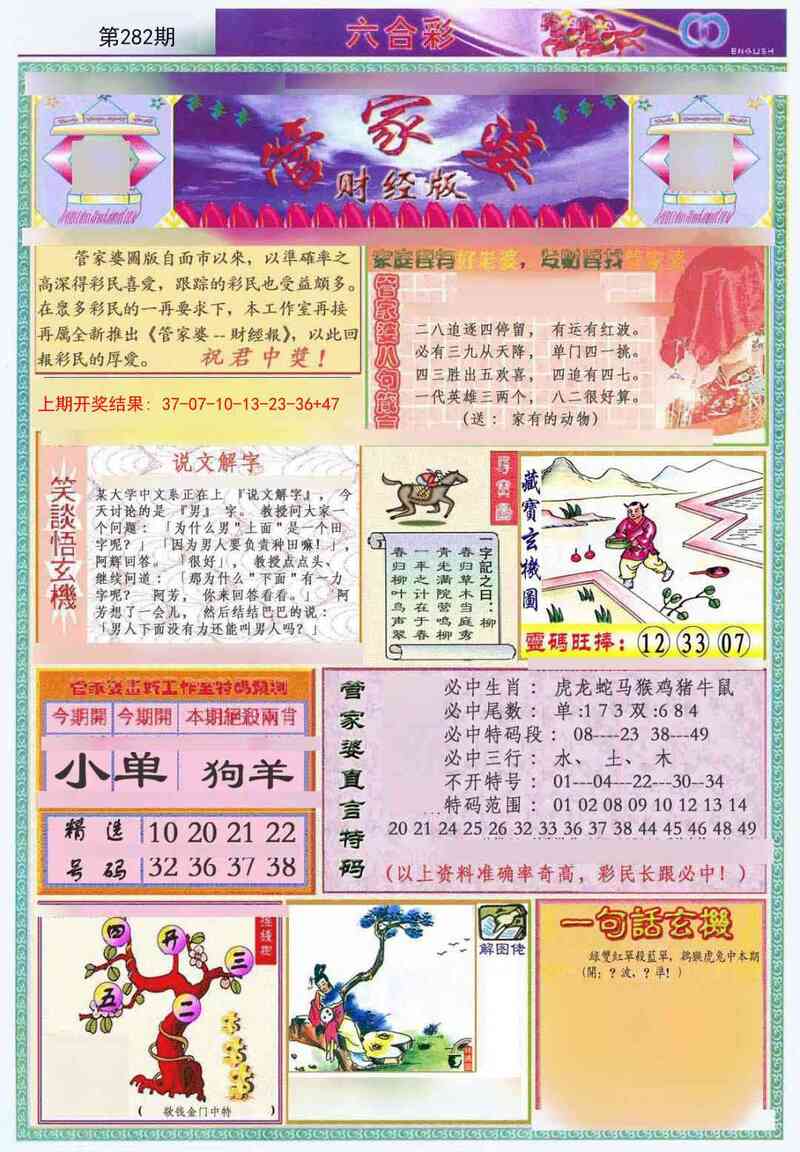 第282期
六合彩
ENGLISH
管家婆
财经版
管家婆圖版自面市以來，以準確率之
高深得彩民喜愛，跟踪的彩民也受益頗多。
在眾多彩民的一再要求下，本工作室再接
再厲全新推出《管家婆--財經報》，以此回
報彩民的厚愛。
祝君中獎！
上期开奖结果: 37-07-10-13-23-36+47
管家婆八句
二八追逐四停留， 有运有红波。
必有三九从天降， 单门四一挑。
四三胜出五欢喜， 四追有四七。
一代英雄三两个， 八二很好算。
（送：家有的动物）
笑談悟玄機
说文解字
某大学中文系正在上『说文解字』，今
天讨论的是『男』字。教授问大家一
个问题：「为什么男"上面"是一个田
字呢？」「因为男人要负责种田嘛！」，
阿辉回答。「很好」，教授点点头、
继续问道：「那为什么"下面"有一力
字呢？ 阿芳，你来回答看看。」 阿
芳想了一会儿，然后结结巴巴的说：
「男人下面没有力还能叫男人吗？」
一字記之曰：柳
春归草木当庭秀
青先满院营鸣柳
一年之计在于春
春归柳叶鸟声翠
藏寶玄機圖
靈碼旺捧：12 33 07
今期開 今期開 本期絕殺兩肖
小 单 狗羊
精選 10 20 21 22
号码 32 36 37 38
管家婆直言特码
必中生肖：虎龙蛇马猴鸡猪牛鼠
必中尾数：单:1 7 3 双:6 8 4
必中特码段：08----23 38---49
必中三行：水、 土、 木
不开特号：01---04---22---30--34
特码范围：01 02 08 09 10 12 13 14
20 21 24 25 26 32 33 36 37 38 44 45 46 48 49
（以上资料准确率奇高，彩民长跟必中！）
四 开 三
五 二
（ 敬钱金门中特 ）
解图佬
一句話玄機
綠雙紅單殺藍單，鷄猴虎兔中本期
(開：？波，？準！)